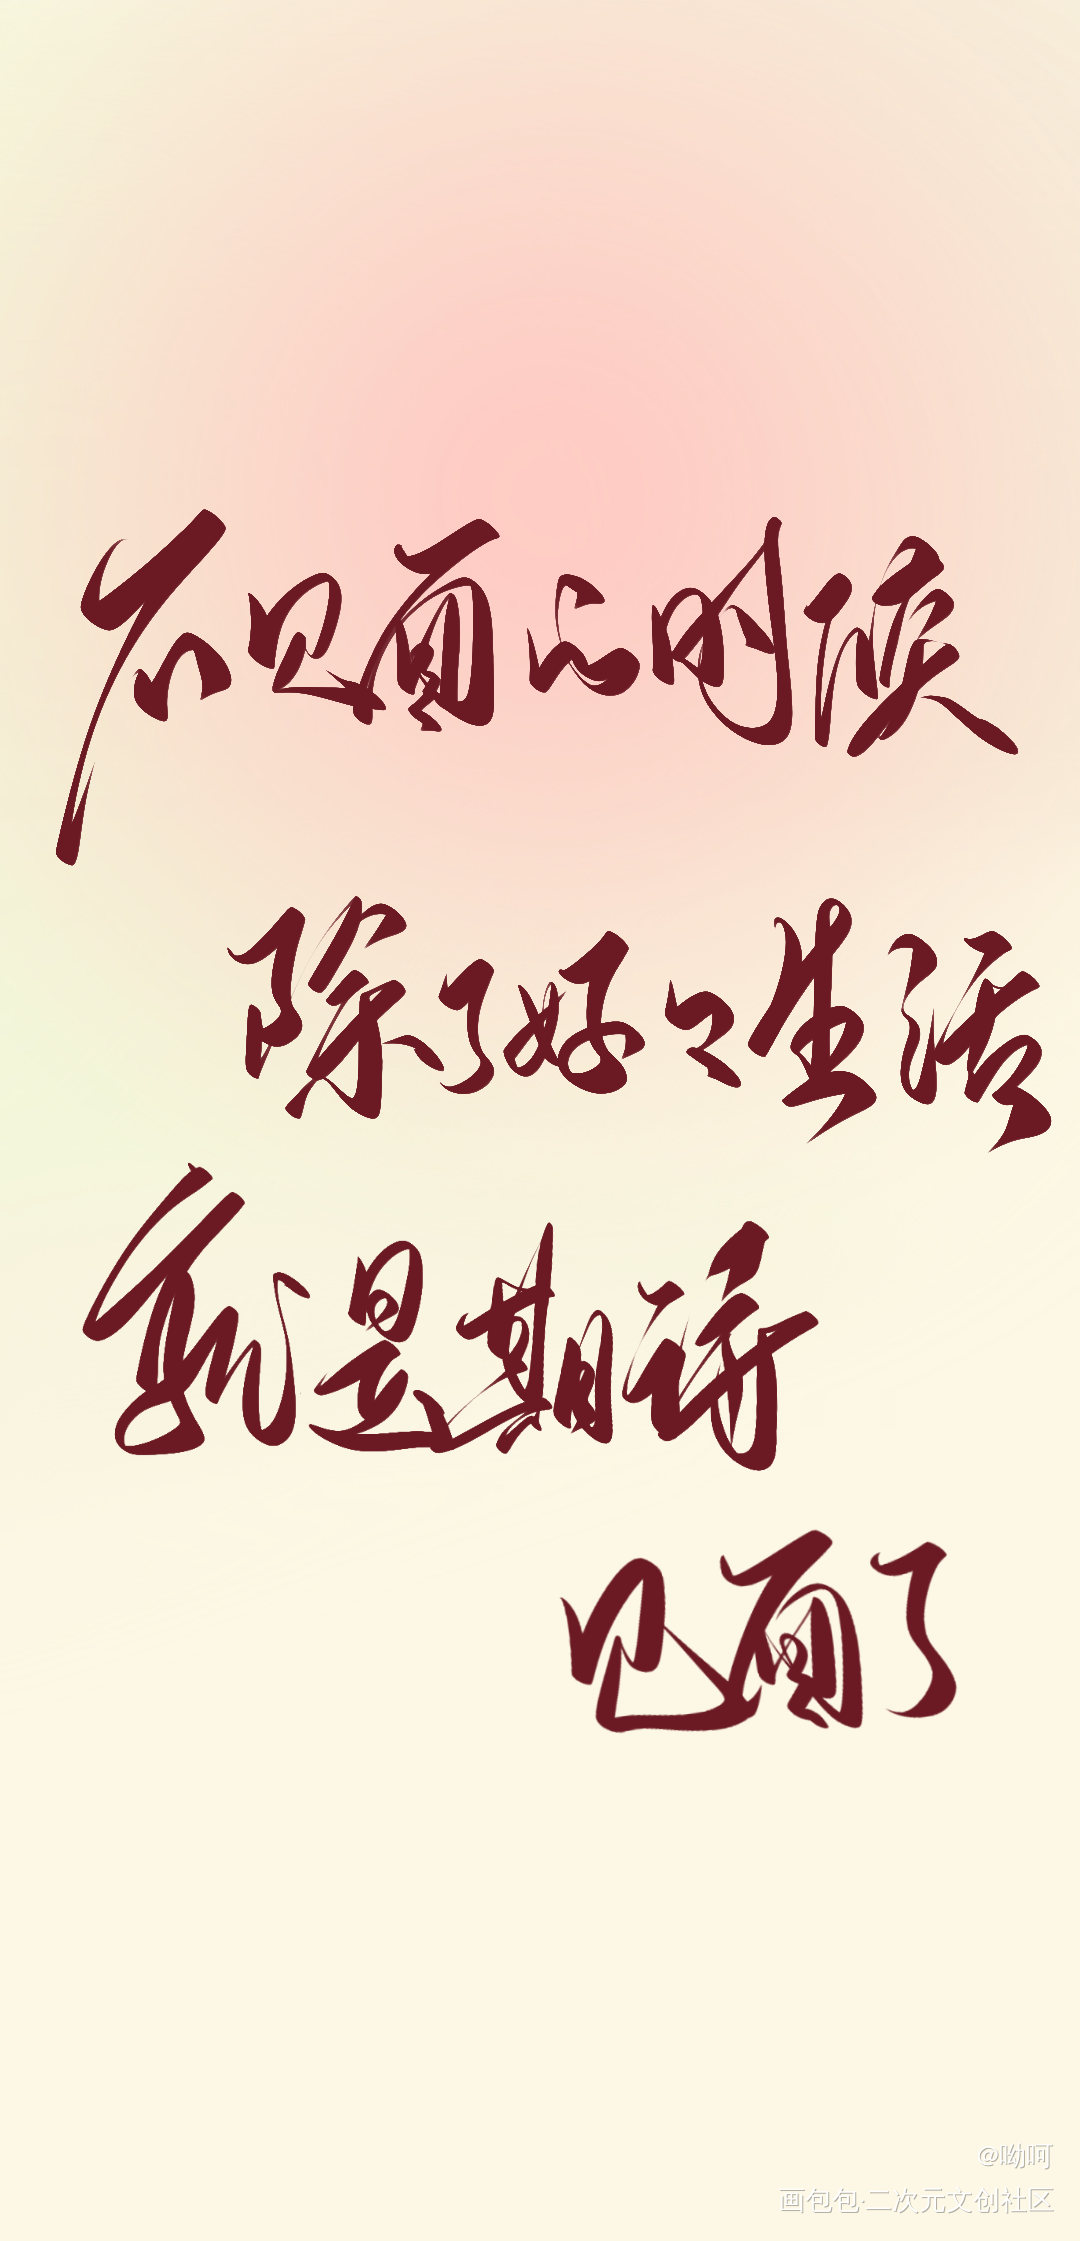 不见面的时候
除了好々生活
就是期待
见面了
@呦呵
画包包·二次元文创社区